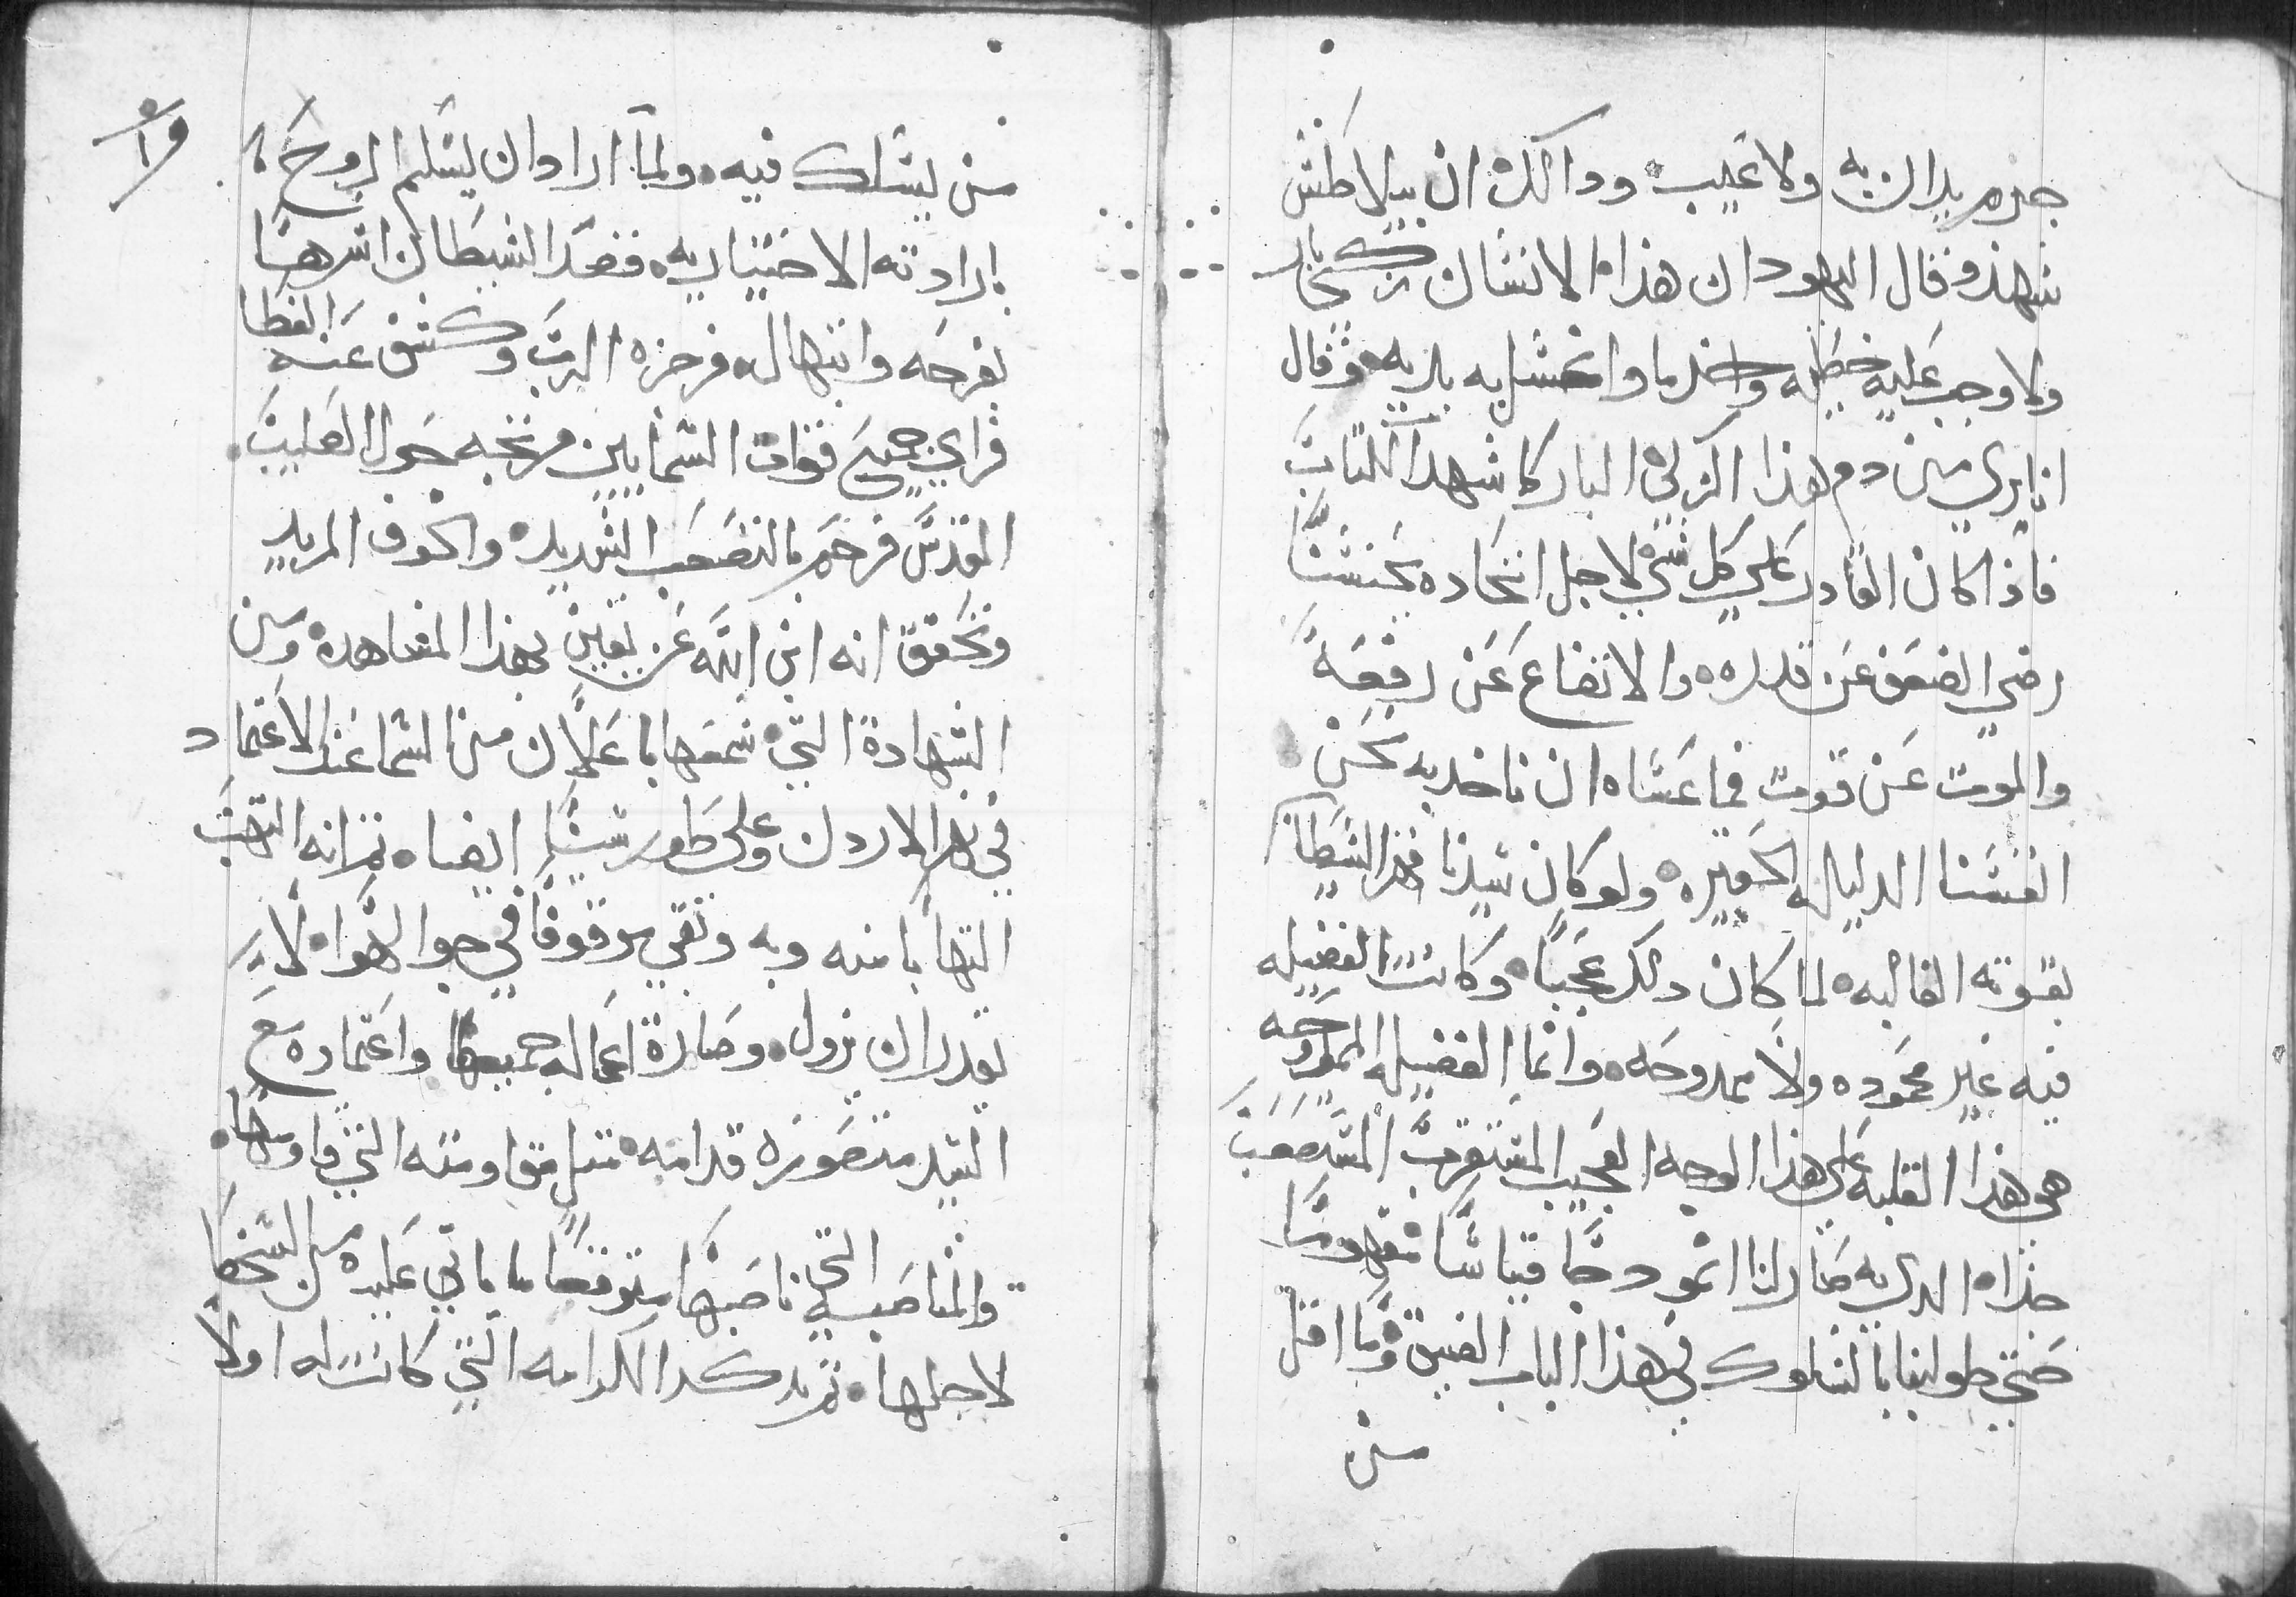 جرم يدان به ولا عيب ودالك ان بيلاطس
شهد وقال اليهود ان هذا الانسان زكي بار
ولا وجب عليه خطيه واخد ما واغتسل به يديه وقال
انا بري من دم هذا الزكي البار كما شهد الكتاب
فاذا كان القادر على كل شي لاجل اتحاده بجنسنا
رضي الضعف عن قدره والاتضاع عن رفعة
والموت عن قوت فما عساه ان ناخد به نحن
انفسنا الدليله الحقيره ولو كان سيدنا قهر الشيطان
بقوته الغالبه لما كان دلك عجبا وكانت الفضيله
فيه غير محموده ولا ممدوحه وانما الفضيله الممدوحه
هي هذا الغلبه على هذا الوجه العجيب المستغرب المستصعب
حداه الدي به صار لنا انمودجا قياسا مفهوما
حتى طولبنا بالسلوك في هذا الباب الضيق وما اقل
من
من يسلك فيه ولما اراد ان يسلم الروح
بارادته الاختياريه فقصد الشيطان اشرها
بفرحه وابتهال فزجره الرب وكشف عنه الغطا
فراي جميع قوات السمايين مرتجه حول الصليب
المقدس فرحم بالتصعب الشديده والخوف المريد
وتحقق انه ابن الله عن يقين بهذا المشاهده ومن
الشهادة التي سمعها باعلان من السما عند الاعتماد
في نهر الاردن وعلى طور سينا ايضا ثم انه التهب
التهابا منه وبه وبقي موقوفا في جوا الهواه لا
يقدر ان يزول وصارة اعماله جميعها واعتماده مع
السيد متصوره قدامه مثل مقاومته التي قاومها
والمناصبه التي ناصبها متوقعا ما ياتي عليه من السخط
لاجلها ثم يدكر الكرامه التي كانت له اولا